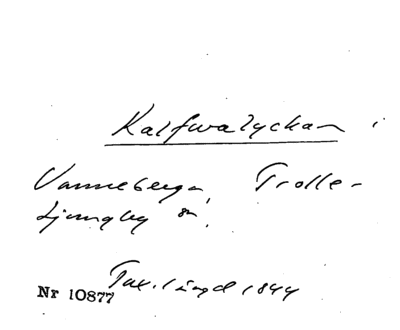 Kalfwalyckan i
Vanneberga, Trolle-
Ljungby sn.
Tax.längd 1844
Nr 10877